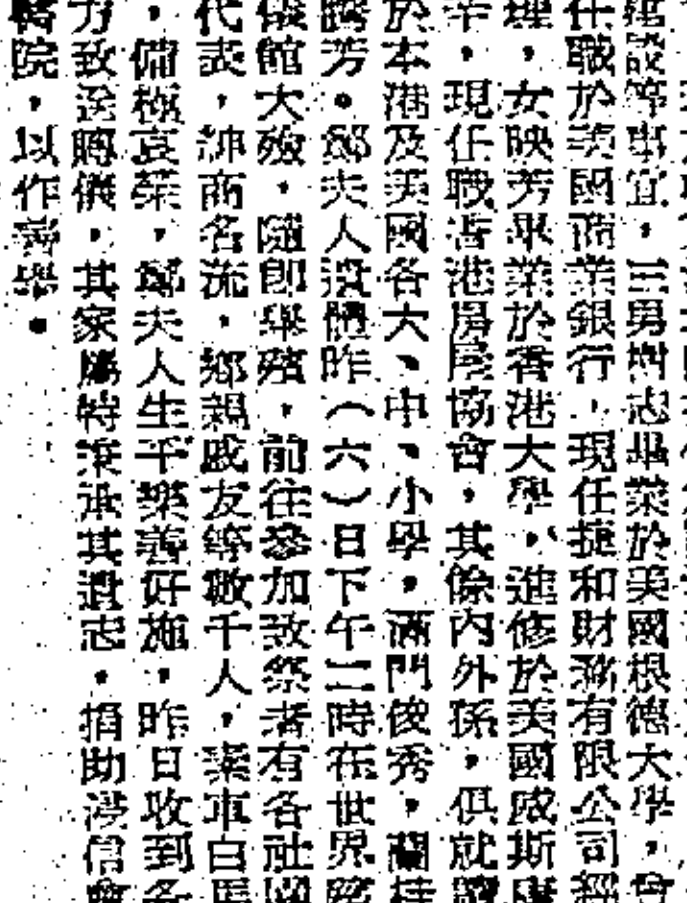 建設等事宜，三男樹志畢業於美國根德大學，曾
任職於美國商業銀行，現任捷和財務有限公司經
理，女映芳畢業於香港大學，進修於美國威斯康
辛，現任職香港房屋協會，其餘內外孫，俱就讀
於本港及美國各大、中、小學，滿門俊秀，蘭桂
騰芳。鄭夫人遺體昨（六）日下午二時在世界殯
儀館大殮，隨即舉殯，前往參加致祭者有各社團
代表，紳商名流，鄉親戚友等數千人，素車白馬
，備極哀榮，鄭夫人生平樂善好施，昨日收到各
方致送賻儀，其家屬特秉承其遺志，捐助浸信會
醫院，以作善舉。